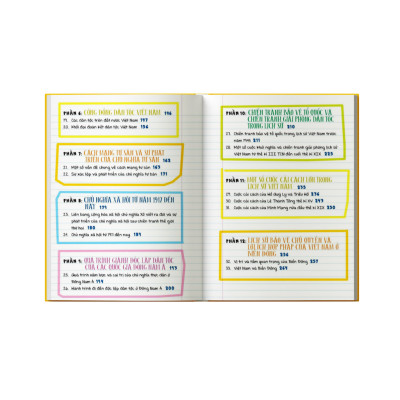 PHẦN 6: CỘNG ĐỒNG DÂN TỘC VIỆT NAM 196
19. Các dân tộc trên đất nước Việt Nam 197
20. Khối đại đoàn kết dân tộc Việt Nam
PHẦN 7: CÁCH MẠNG TƯ SẢN VÀ SỰ PHÁT
TRIỂN CỦA CHỦ NGHĨA TƯ BẢN 162
21. Một số vấn đề chung về cách mạng tư sản 163
22. Sự xác lập và phát triển của chủ nghĩa tư bản 171
PHẦN 8: CHỦ NGHĨA XÃ HỘI TỪ NĂM 1917 ĐẾN
NAY
23. Liên bang Cộng hòa xã hội chủ nghĩa Xô viết ra đời và sự
phát triển của chủ nghĩa xã hội sau chiến tranh thế giới
thứ hai
24. Chủ nghĩa xã hội từ 1991 đến nay 189
PHẦN 9: QUÁ TRÌNH GIÀNH ĐỘC LẬP DÂN TỘC
CỦA CÁC QUỐC GIA ĐÔNG NAM Á 197
25. Quá trình xâm lược và cai trị của chủ nghĩa thực dân ở
Đông Nam Á
26. Hành trình đi đến độc lập dân tộc ở Đông Nam Á
PHẦN 10: CHIẾN TRANH BẢO VỆ TỔ QUỐC VÀ
CHIẾN TRANH GIẢI PHÓNG DÂN TỘC
TRONG LỊCH SỬ 210
27. Chiến tranh bảo vệ tổ quốc trong lịch sử Việt Nam trước
năm 1945 211
28. Một số cuộc khởi nghĩa và chiến tranh giải phóng lịch sử
Việt Nam từ thế kỉ III TCN đến cuối thế kỉ XIX
PHẦN 11: MỘT SỐ CUỘC CẢI CÁCH LỚN TRONG
LỊCH SỬ VIỆT NAM
29. Cuộc cải cách của Hồ Quý Ly và Triều Hồ
30. Cuộc cải cách của Lê Thánh Tông thế kỉ XV
31. Cuộc cải cách của Minh Mạng nửa đầu thế kỉ XIX
PHẦN 12: LỊCH SỬ BẢO VỆ CHỦ QUYỀN VÀ
LỢI ÍCH HỢP PHÁP CỦA VIỆT NAM Ở
BIỂN ĐÔNG
32. Vị trí và tầm quan trọng của Biển Đông 257
33. Việt Nam và Biển Đông